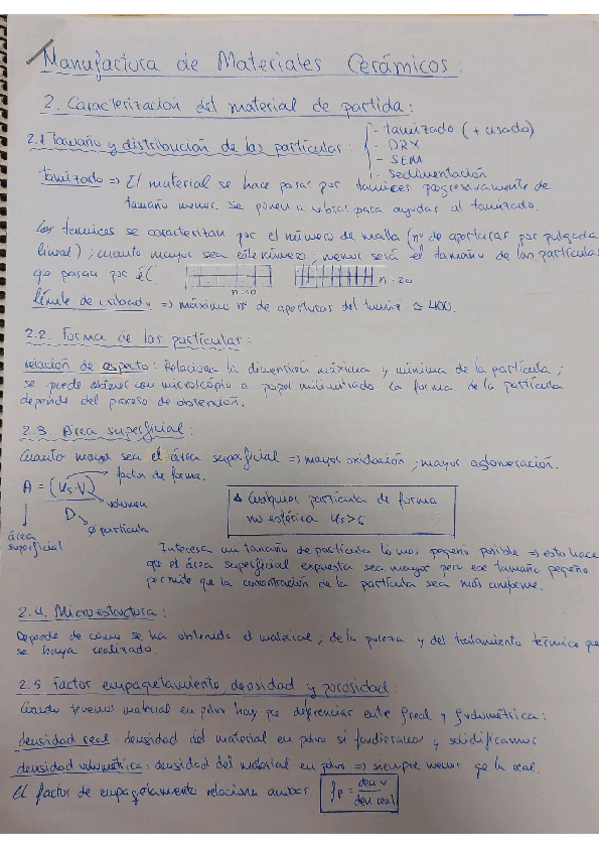 Manufactura de Materiales Cerámicos:
2. Caracterización del material de partida:
- tamizado (+ usado)
2.1 Tamaño y distribución de las partículas: - DRX
- SEM
- Sedimentación
tamizado => El material se hace pasar por tamices progresivamente de
tamaño menor. Se ponen a vibrar para ayudar al tamizado.
Los tamices se caracterizan por el número de malla (nº de aperturas por pulgada
lineal); cuanto mayor sea este número, menor será el tamaño de las partículas
que pasan por él. n=10 n=20
límite de cribado => máximo nº de aperturas del tamiz ≃ 400.
2.2. Forma de las partículas:
relación de aspecto: Relaciona la dimensión máxima y mínima de la partícula;
se puede obtener con microscópio o papel milimitrado. La forma de la partícula
depende del proceso de obtención.
2.3. Area superficial:
Cuanto mayor sea el área superficial => mayor oxidación; mayor aglomeración.
factor de forma.
A = (Us·V)
volumen
D
ø partícula
área
superficial
Cualquier partícula de forma
no esférica Us>6
Interesa un tamaño de partícula lo mas pequeño posible => esto hace
que el área superficial expuesta sea mayor pero ese tamaño pequeño
permite que la concentración de la partícula sea más uniforme.
2.4. Microestructura:
Depende de cómo se ha obtenido el material, de la pureza y del tratamiento térmico que
se haya realizado.
2.5 Factor empaquetamiento densidad y porosidad:
Cuando tenemos material en polvo hay que diferenciar entre ρreal y ρvolumétrica:
densidad real: densidad del material en polvo si fundieramos y solidificamos
densidad volumétrica: densidad del material en polvo => siempre menor que la real.
El factor de empaquetamiento relaciona ambas fp = den v / den real